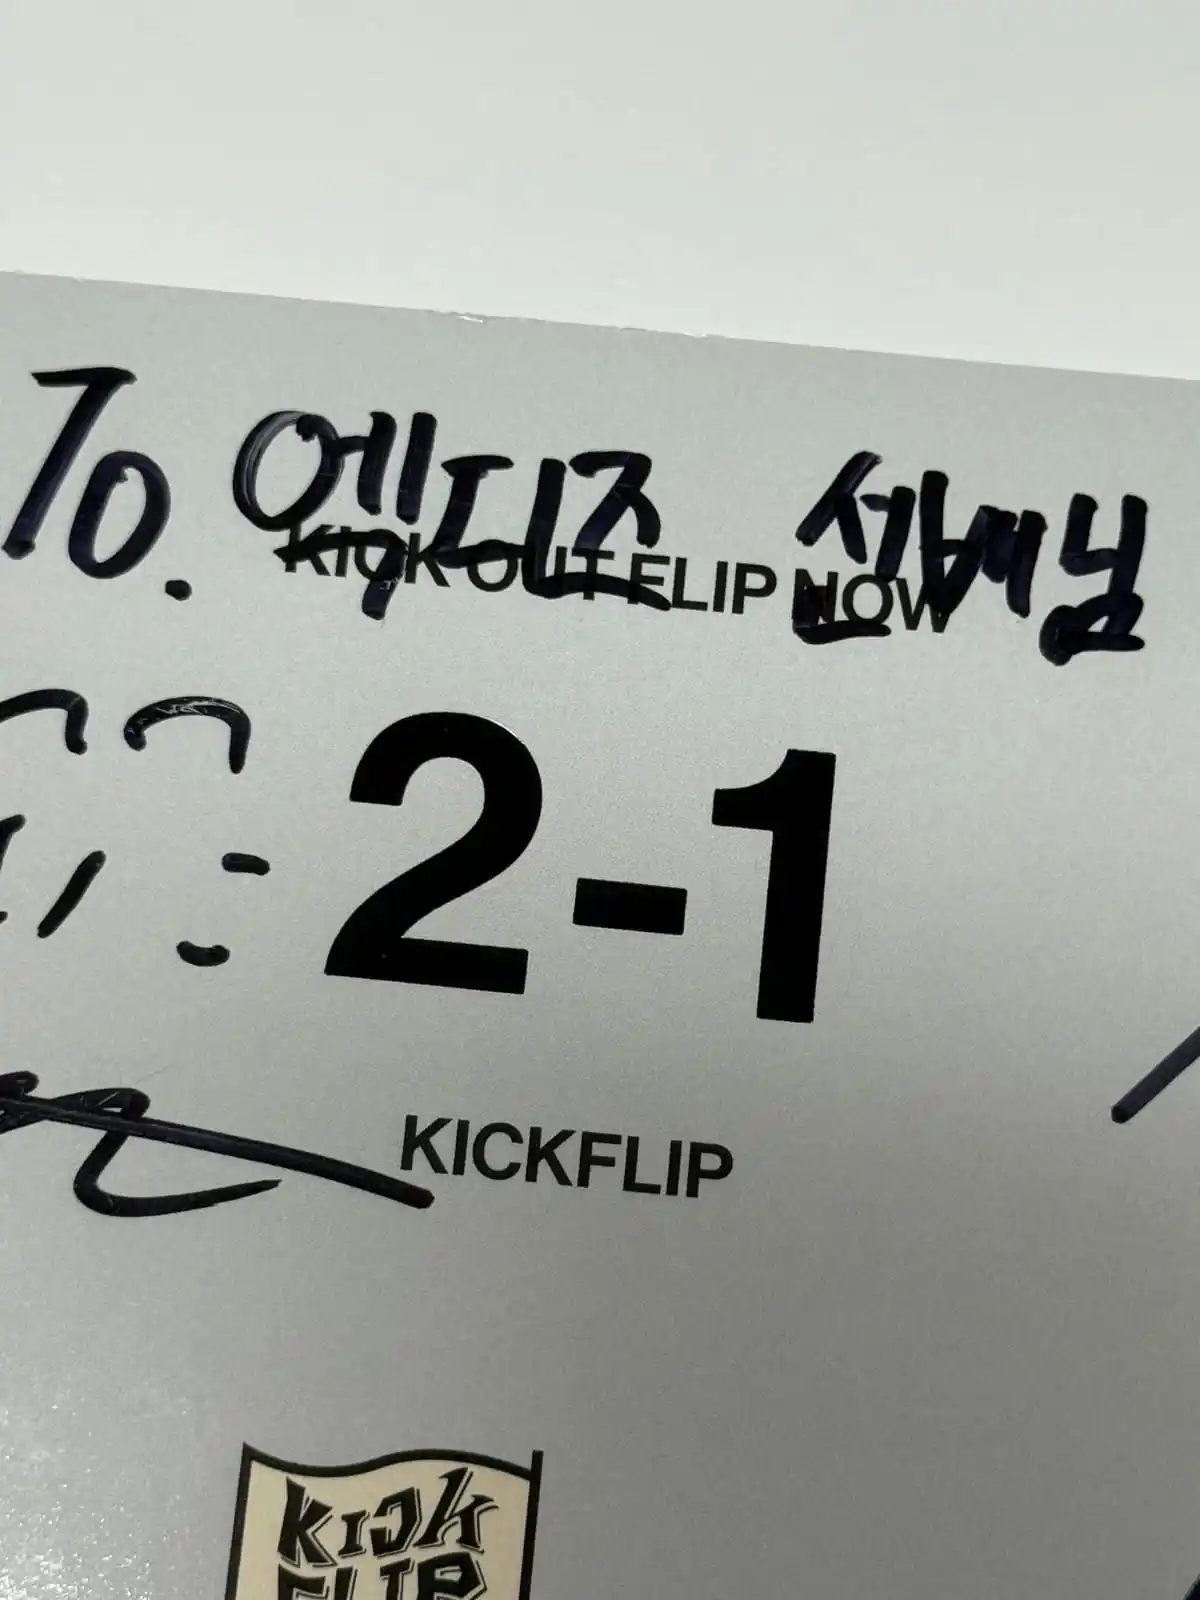 To. 엔디즈 선배님
KICK OUT FLIP NOW
2-1
KICKFLIP
KICK
FLIP